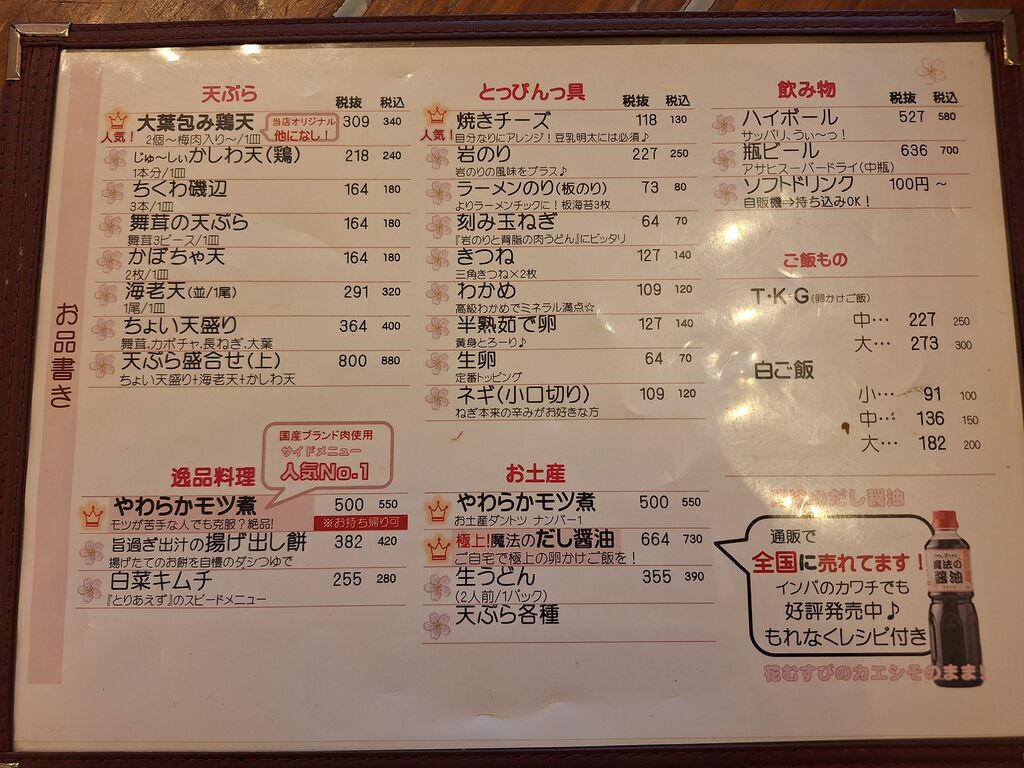 お品書き
天ぷら
税抜 税込
人気! 大葉包み鶏天 309 340
当店オリジナル
他になし!
2個~梅肉入り~/1皿
じゅ~しぃかしわ天(鶏) 218 240
1本分/1皿
ちくわ磯辺 164 180
3本/1皿
舞茸の天ぷら 164 180
舞茸3ピース/1皿
かぼちゃ天 164 180
2枚/1皿
海老天(並/1尾) 291 320
1尾/1皿
ちょい天盛り 364 400
舞茸,カボチャ,長ねぎ,大葉
天ぷら盛合せ(上) 800 880
ちょい天盛り+海老天+かしわ天
国産ブランド肉使用
サイドメニュー
人気No.1
逸品料理
やわらかモツ煮 500 550
モツが苦手な人でも克服?絶品! ※お持ち帰り可
旨過ぎ出汁の揚げ出し餅 382 420
揚げたてのお餅を自慢のダシつゆで
白菜キムチ 255 280
『とりあえず』のスピードメニュー
とっぴんっ具
税抜 税込
人気! 焼きチーズ 118 130
自分なりにアレンジ!豆乳明太には必須♪
岩のり 227 250
岩のりの風味をプラス♪
ラーメンのり(板のり) 73 80
よりラーメンチックに!板海苔3枚
刻み玉ねぎ 64 70
『岩のりと背脂の肉うどん』にピッタリ
きつね 127 140
三角きつね×2枚
わかめ 109 120
高級わかめでミネラル満点☆
半熟茹で卵 127 140
黄身とろーり♪
生卵 64 70
定番トッピング
ネギ(小口切り) 109 120
ねぎ本来の辛みがお好きな方
お土産
やわらかモツ煮 500 550
お土産ダントツ ナンバー1
極上!魔法のだし醤油 664 730
ご自宅で極上の卵かけご飯を!
生うどん 355 390
(2人前/1パック)
天ぷら各種
飲み物
税抜 税込
ハイボール 527 580
サッパリ,うぃ~っ!
瓶ビール 636 700
アサヒスーパードライ(中瓶)
ソフトドリンク 100円~
自販機⇒持ち込みOK!
ご飯もの
T・K・G(卵かけご飯)
中… 227 250
大… 273 300
白ご飯
小… 91 100
中… 136 150
大… 182 200
のだし醤油
通販で
全国に売れてます!
インパのカワチでも
好評発売中♪
もれなくレシピ付き
魔法の
醤油
花むすびのカエシそのまま!